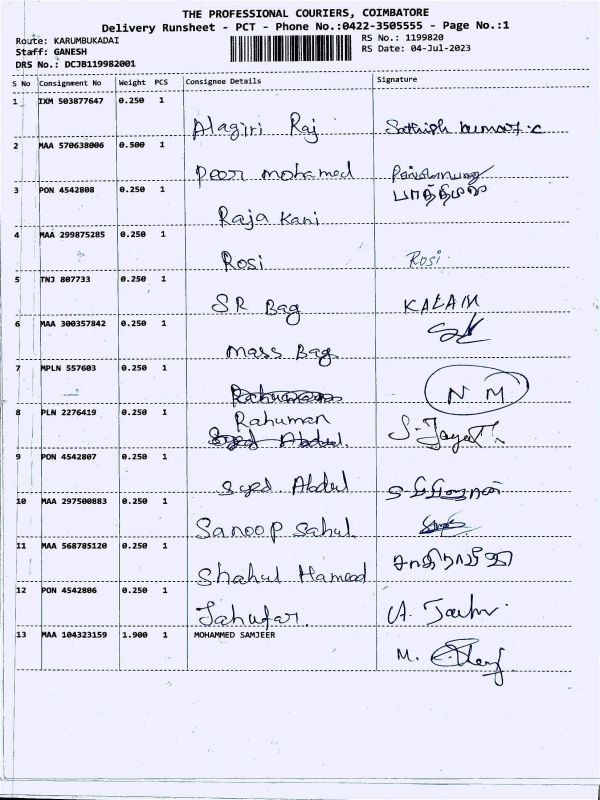 THE PROFESSIONAL COURIERS, COIMBATORE
Delivery Runsheet - PCT - Phone No.:0422-3505555 - Page No.:1
Route: KARUMBUKADAI
RS No.: 1199820
Staff: GANESH
RS Date: 04-Jul-2023
DRS No.: DCJB119982001
S No Consignment No Weight PCS Consignee Details Signature
1 IXM 503877647 0.250 1
Alagiri Raj Sathish kumar.c
2 MAA 570638006 0.500 1
Peer mohamed
3 PON 4542808 0.250 1 பாத்திமா
Raja Kani
4 MAA 299875285 0.250 1
Rosi Rosi
5 TNJ 807733 0.250 1
SR Bag KALAM
6 MAA 300357842 0.250 1
Mass Bag
7 MPLN 557603 0.250 1
NM
8 PLN 2276419 0.250 1
Rahuman
Syed Abdul
9 PON 4542807 0.250 1
Syed Abdul
10 MAA 297500883 0.250 1
Sanoop Sahul
11 MAA 568785120 0.250 1
Shahul Hameed
12 PON 4542806 0.250 1
Jahufar
13 MAA 104323159 1.900 1 MOHAMMED SAMJEER
M.